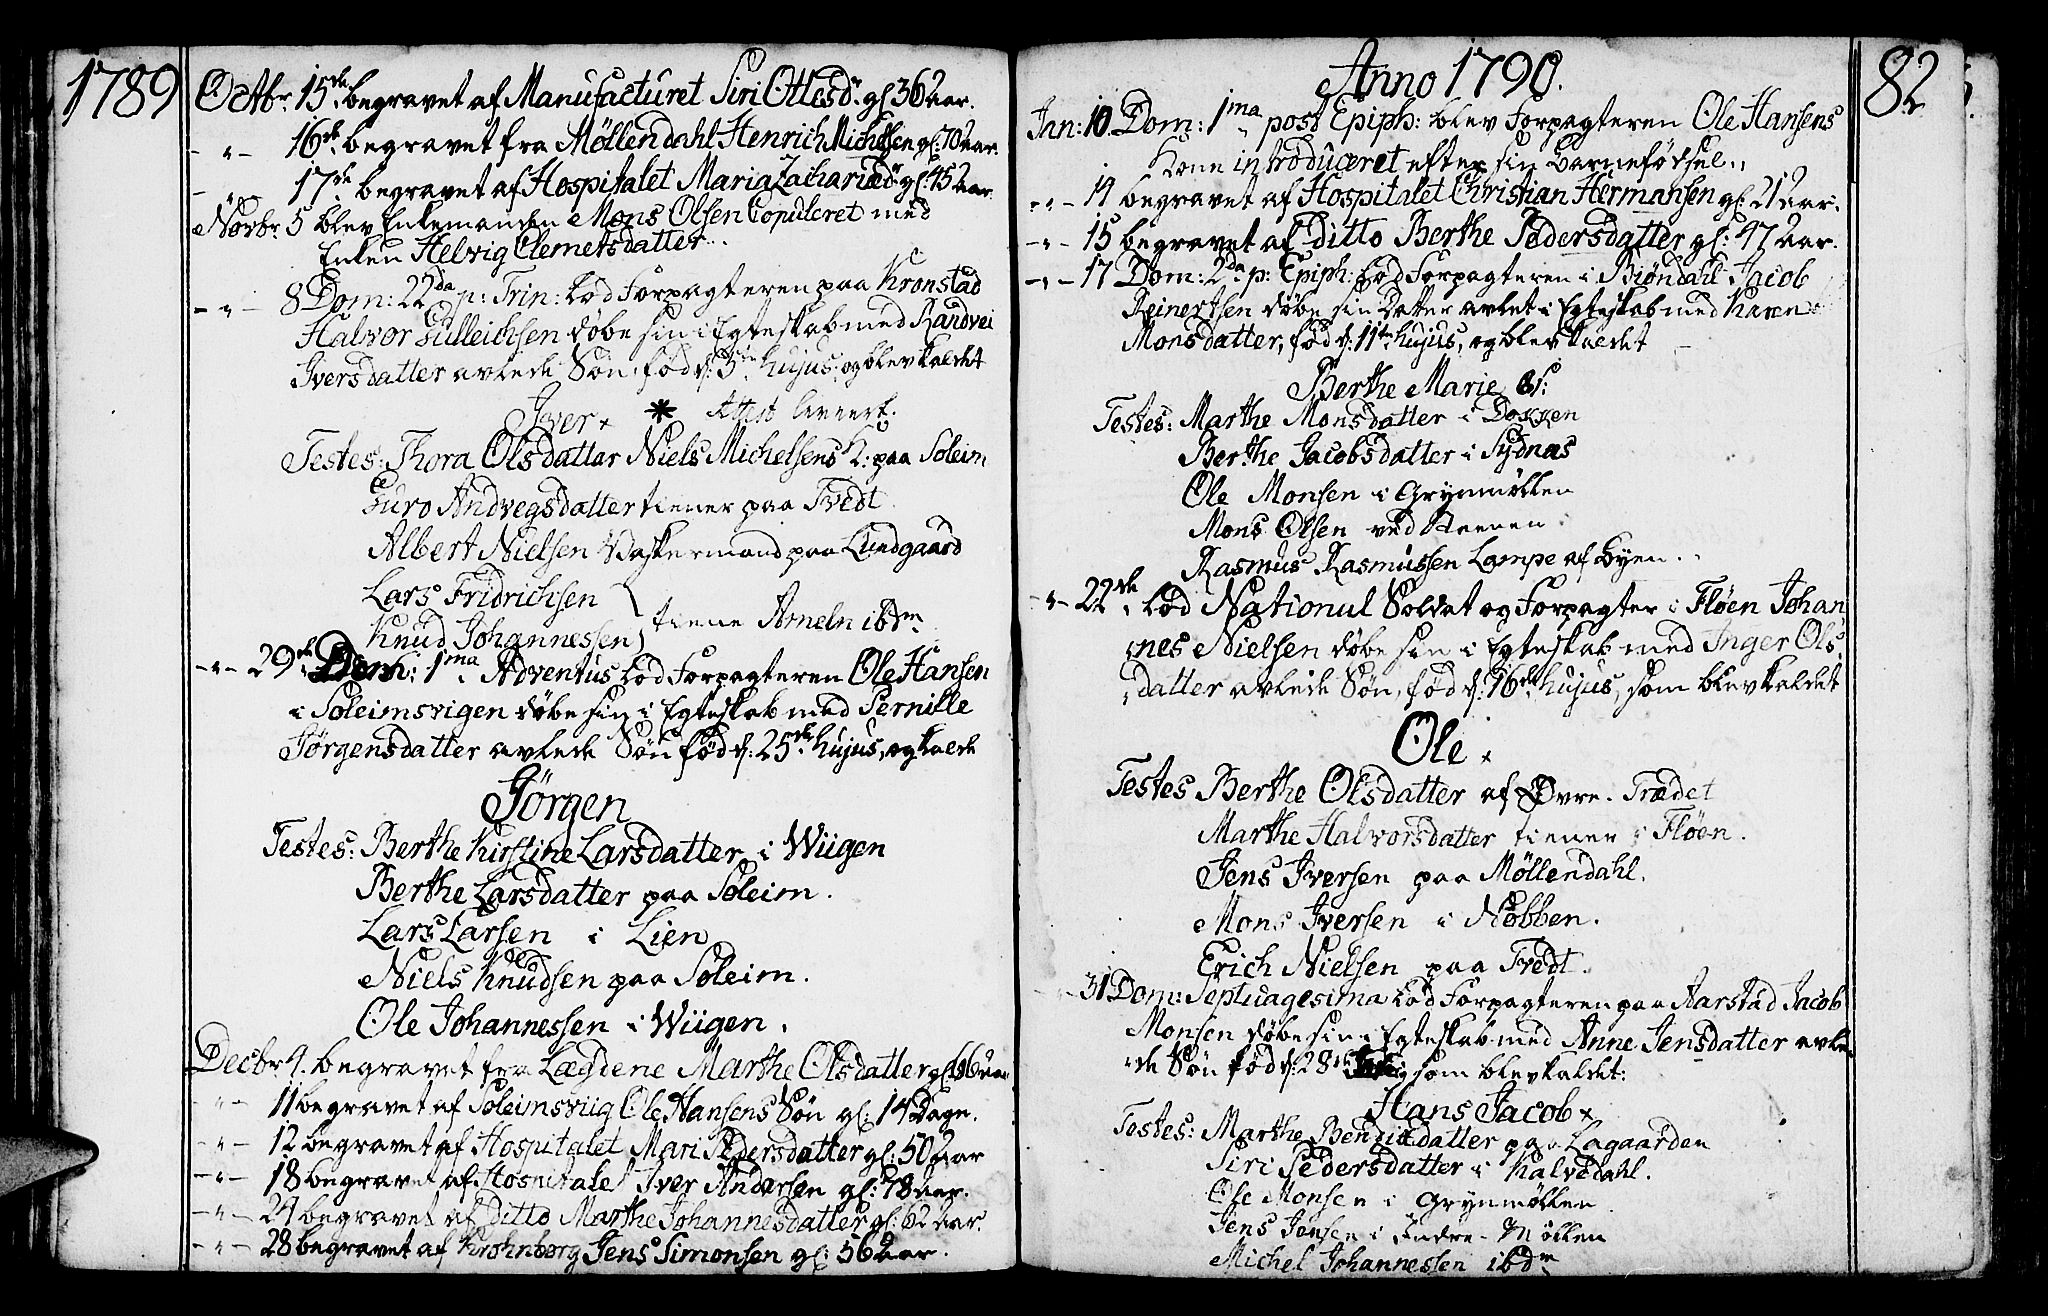 1789
Octbr. 15de begravet af Manufacturet Siri Ottesdr. gl. 36 Aar.
- " - 16de begravet fra Møllendahl Henrich Michelsen gl: 70 Aar.
- " - 17de begravet af Hospitalet Maria Zachariædr. gl: 45 Aar.
Novbr. 5 blev Enkemanden Mons Olsen Copuleret med
Enken Helvig Clemetsdatter.
- " - 8 Dom: 22da p: Trin: lod Forpagteren paa Kronstad
Halvor Gulleichsen døbe sin i Egteskab med Randvei
Iversdatter avlede Søn, fød d: 5te hujus, og blev kaldet
Iver. Attest leveert.
Testes: Thora Olsdatter Niels Michelsens K: paa Soleim
Guro Andvegsdatter tiener paa Tvedt.
Albert Nielsen Vaskermand paa Lundgaard
Lars Fridrichsen
Knud Johannessen tiene Armeln ibdm
- " - 29de Dom: 1ma Adventus lod Forpagteren Ole Hansen
i Soleimsvigen døbe sin i Egteskab med Pernille
Jørgensdatter avlede Søn fød d: 25de hujus, og kalde
Jørgen
Testes: Berthe Kirstine Larsdatter i Wiigen
Berthe Larsdatter paa Soleim.
Lars Larsen i Lien
Niels Knudsen paa Soleim.
Ole Johannessen i Wiigen.
Decbr 9. begravet fra Lægdene Marthe Olsdatter gl: 66 Aar
- " - 11 begravet af Soleimsviig Ole Hansens Søn gl. 14 Dage.
- " - 12 begravet af Hospitalet Mari Pedersdatter gl: 50 Aar
- " - 18 begravet af Hospitalet Iver Andersen gl: 78 Aar.
- " - 24 begravet af Ditto Marthe Johannesdatter gl: 62 Aar.
- " - 28 begravet af Krohnborg Jens Simonsen gl: 56 Aar.
Anno 1790.
82
Jan: 10. Dom: 1ma post Epiph: blev Forpagteren Ole Hansens
Kone introduceret efter sin Barnefødsel.
- " - 14 begravet af Hospitalet Christian Hermansen gl: 21 Aar.
- " - 15 begravet af Ditto Berthe Pedersdatter gl: 47 Aar.
- " - 17 Dom: 2da p: Epiph: lod Forpagteren i Biøndahl Jacob
Reinertsen døbe sin Datter avlet i Egteskab med Karen
Monsdatter, fød d: 11te hujus, og blev kaldet
Berthe Marie
Testes: Marthe Monsdatter i Doggen
Berthe Jacobsdatter i Sydnæs
Ole Monsen i Grynmøllen
Mons Olsen ved Steenen
Rasmus Rasmussen Lampe af Byen.
- " - 22de lod National Soldat og Forpagter i Fløen Johan
nes Nielsen døbe sin i Egteskab med Inger Ols
datter avlede Søn, fød d: 16de hujus, som blev kaldet
Ole
Testes Berthe Olsdatter af Øvre-Trædet
Marthe Halvorsdatter tiener i Fløen.
Jens Iversen paa Møllendahl.
Mons Iversen i Nøbben.
Erich Nielsen paa Tvedt.
- 31 Dom: Septuagesima lod Forpagteren paa Aarstad Jacob
Monsen døbe sin i Egteskab med Anne Jensdatter avle
de Søn fød d: 28de som blev kaldet:
Hans Jacob
Testes: Marthe Bendixdatter paa Lagaarden
Siri Pedersdatter i Kalvedahl.
Ole Monsen i Grynmøllen
Jens Jensen i Indre-Møllen
Michel Johannessen ibdm